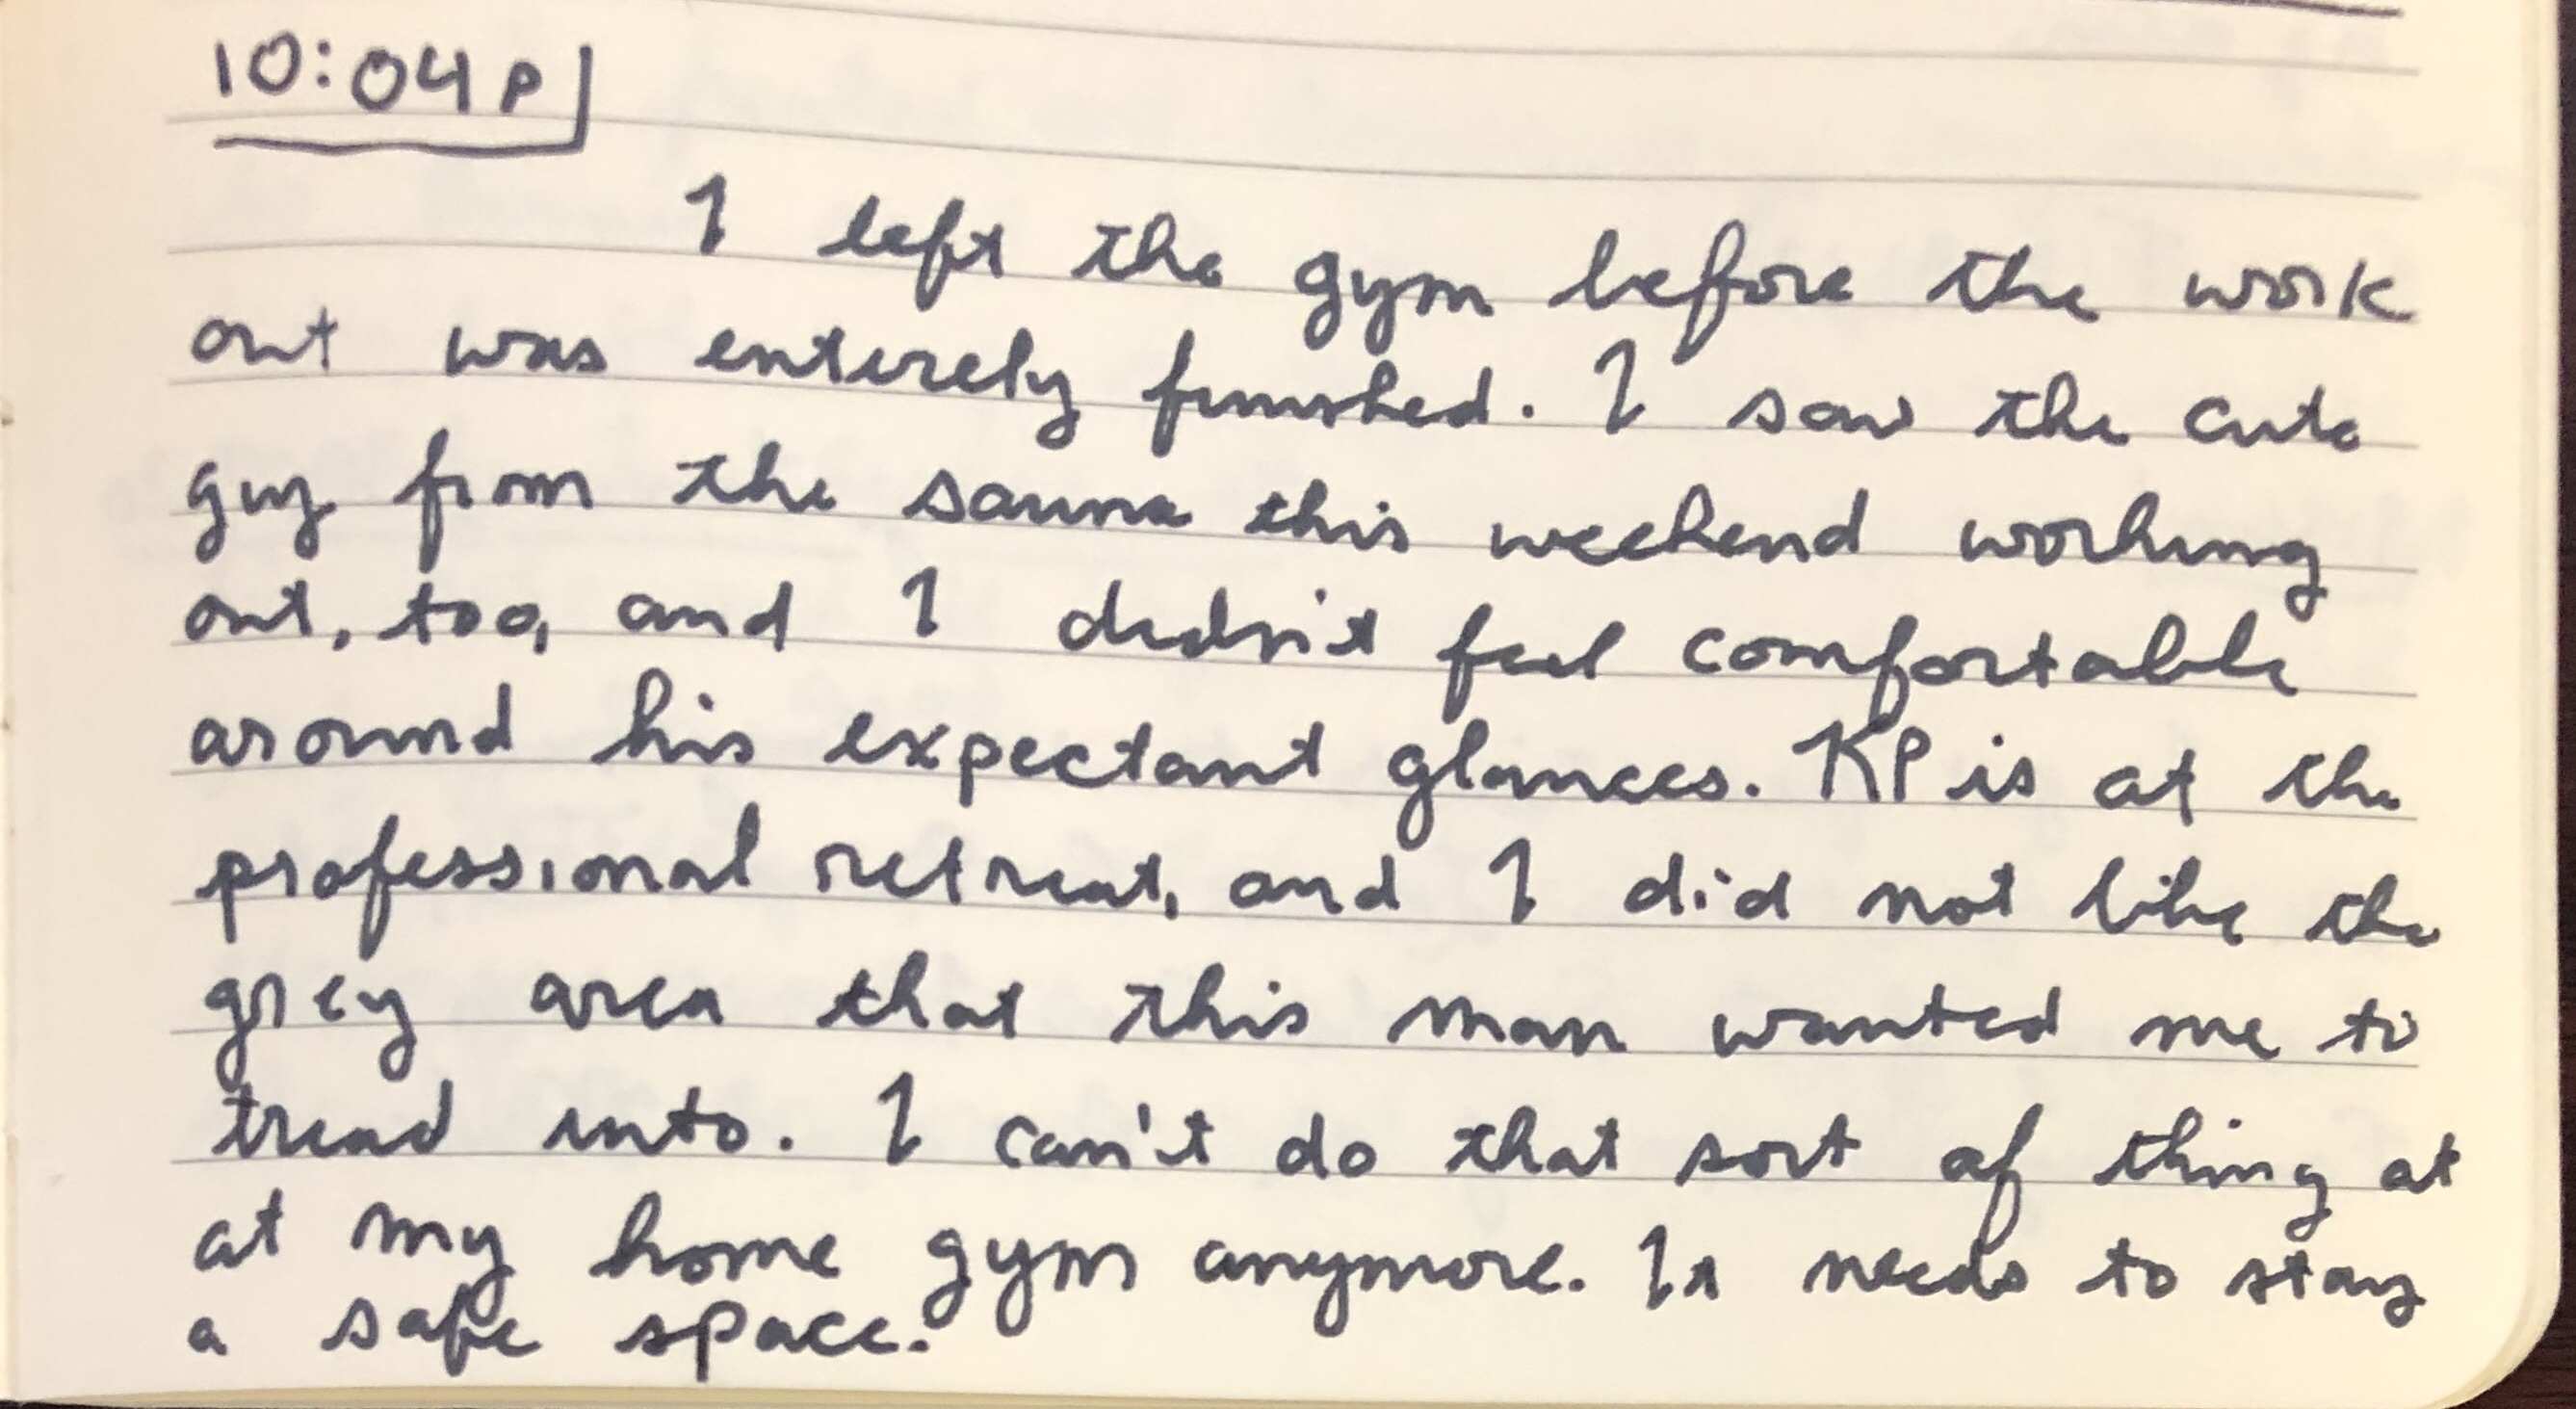 10:04p
I left the gym before the work
out was entirely finished. I saw the cute
guy from the sauna this weekend working
out, too, and I didn't feel comfortable
around his expectant glances. KP is at the
professional retreat, and I did not like the
grey area that this man wanted me to
tread into. I can't do that sort of thing at
at my home gym anymore. It needs to stay
a safe space.